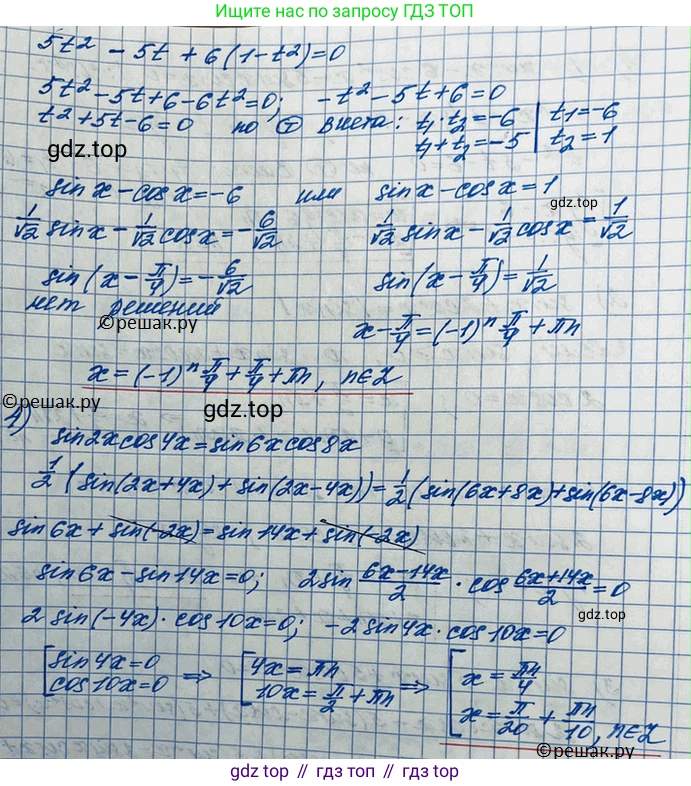 Ищите нас в поиске по запросу ГДЗ ТОП
5t² - 5t + 6(1-t²)=0
5t²-5t+6-6t²=0; -t²-5t+6=0
t²+5t-6=0 по Ⓣ Виета: t₁·t₂=-6 | t₁=-6
t₁+t₂=-5 | t₂=1
gdz.top
sin x - cos x = -6 или sin x - cos x = 1
gdz.top
1/√2 sin x - 1/√2 cos x = -6/√2 1/√2 sin x - 1/√2 cos x = 1/√2
sin(x - π/4) = -6/√2 sin(x - π/4) = 1/√2
нет решений
©решак.ру
x - π/4 = (-1)ⁿ π/4 + πn
x = (-1)ⁿ π/4 + π/4 + πn, n∈Z
©решак.ру
gdz.top
4)
sin2x cos4x = sin6x cos8x
1/2 (sin(2x+4x) + sin(2x-4x)) = 1/2 (sin(6x+8x) + sin(6x-8x))
sin6x + sin(-2x) = sin14x + sin(-2x)
sin6x - sin14x = 0; 2sin (6x-14x)/2 · cos (6x+14x)/2 = 0
2 sin(-4x) · cos10x = 0; -2 sin4x · cos10x = 0
gdz.top
[ sin4x=0 ⇒ [ 4x = πn ⇒ [ x = πn/4
cos10x=0 10x = π/2 + πn x = π/20 + πn/10, n∈Z
©решак.ру
gdz.top // гдз.топ // гдз топ // gdz top